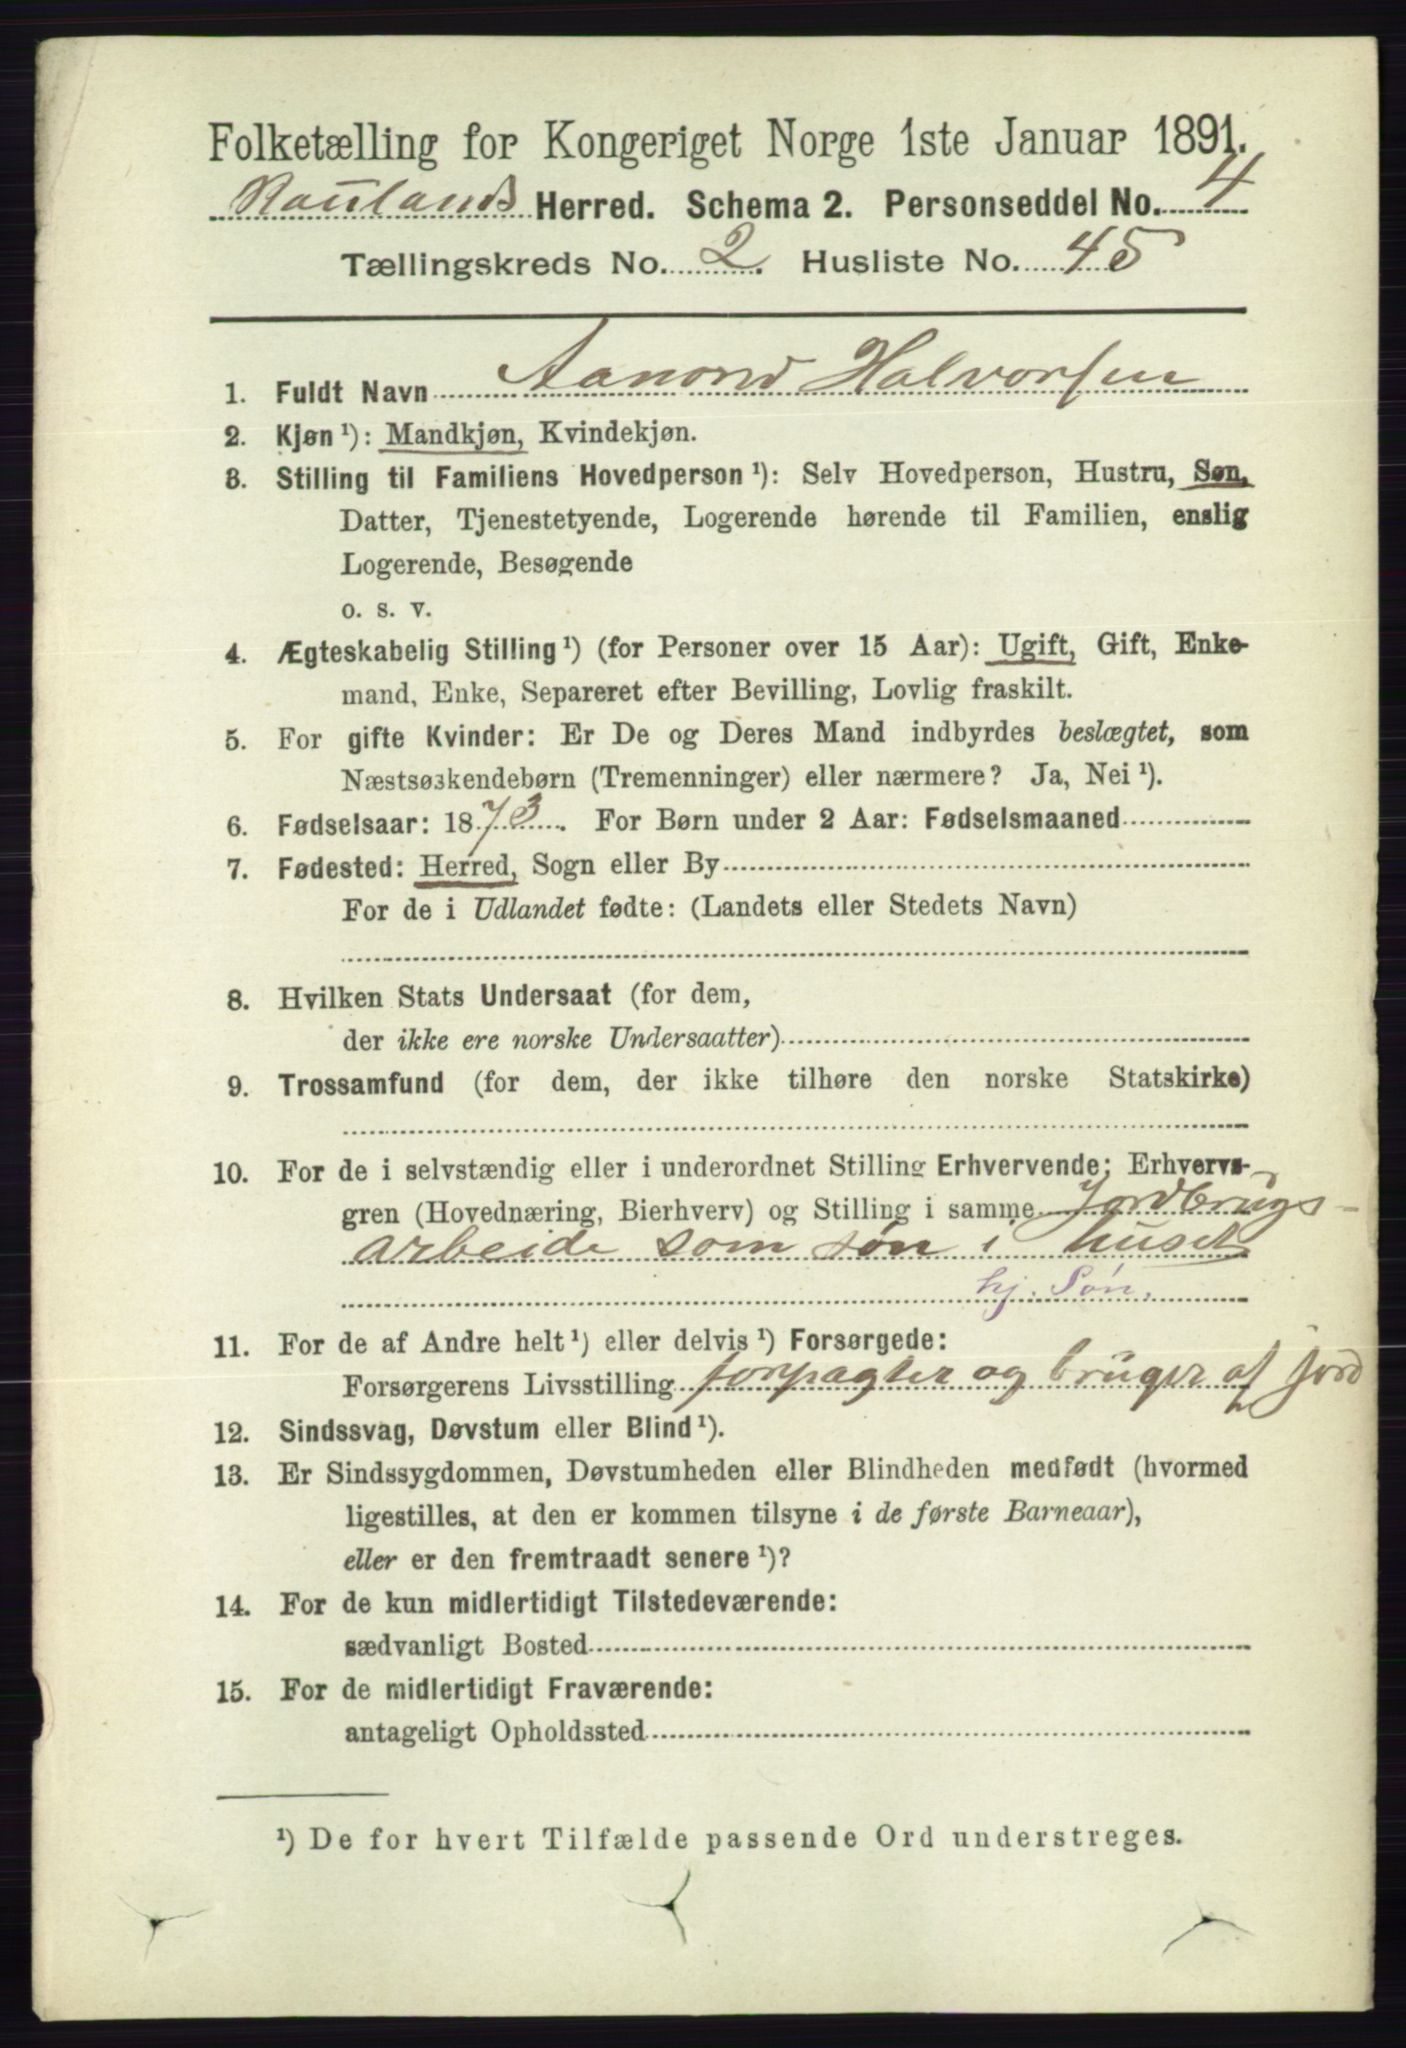 Folketælling for Kongeriget Norge 1ste Januar 1891.
Raulands Herred. Schema 2. Personseddel No. 4
Tællingskreds No. 2. Husliste No. 45
1. Fuldt Navn Aanond Halvorsen
2. Kjøn ¹): Mandkjøn, Kvindekjøn.
3. Stilling til Familiens Hovedperson ¹): Selv Hovedperson, Hustru, Søn,
Datter, Tjenestetyende, Logerende hørende til Familien, enslig
Logerende, Besøgende
o. s. v.
4. Ægteskabelig Stilling ¹) (for Personer over 15 Aar): Ugift, Gift, Enke-
mand, Enke, Separeret efter Bevilling, Lovlig fraskilt.
5. For gifte Kvinder: Er De og Deres Mand indbyrdes beslægtet, som
Næstsøskendebørn (Tremenninger) eller nærmere? Ja, Nei ¹).
6. Fødselsaar: 1873. For Børn under 2 Aar: Fødselsmaaned
7. Fødested: Herred, Sogn eller By
For de i Udlandet fødte: (Landets eller Stedets Navn)
8. Hvilken Stats Undersaat (for dem,
der ikke ere norske Undersaatter)
9. Trossamfund (for dem, der ikke tilhøre den norske Statskirke)
10. For de i selvstændig eller i underordnet Stilling Erhvervende; Erhvervs-
gren (Hovednæring, Bierhverv) og Stilling i samme Jordbrugs-
arbeide som søn i huset
hj. Søn.
11. For de af Andre helt ¹) eller delvis ¹) Forsørgede:
Forsørgerens Livsstilling forpagter og bruger af jord
12. Sindssvag, Døvstum eller Blind ¹).
13. Er Sindssygdommen, Døvstumheden eller Blindheden medfødt (hvormed
ligestilles, at den er kommen tilsyne i de første Barneaar),
eller er den fremtraadt senere ¹)?
14. For de kun midlertidigt Tilstedeværende:
sædvanligt Bosted
15. For de midlertidigt Fraværende:
antageligt Opholdssted
¹) De for hvert Tilfælde passende Ord understreges.